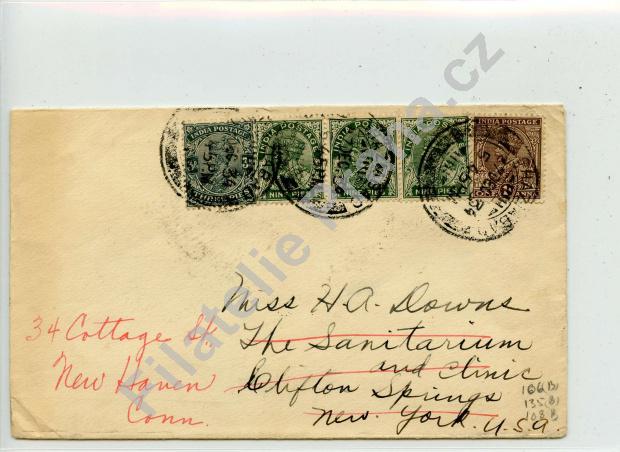 INDIA POSTAGE
INDIA POSTAGE
INDIA POSTAGE
NINE PIES
NINE PIES
NINE PIES
Miss H.A. Downs
The Sanitarium
and clinic
Clifton Springs
New York.
U.S.A.
34 Cottage St.
New Haven
Conn.
106(B)
135(B)
108 B
Filatelie Praha.cz